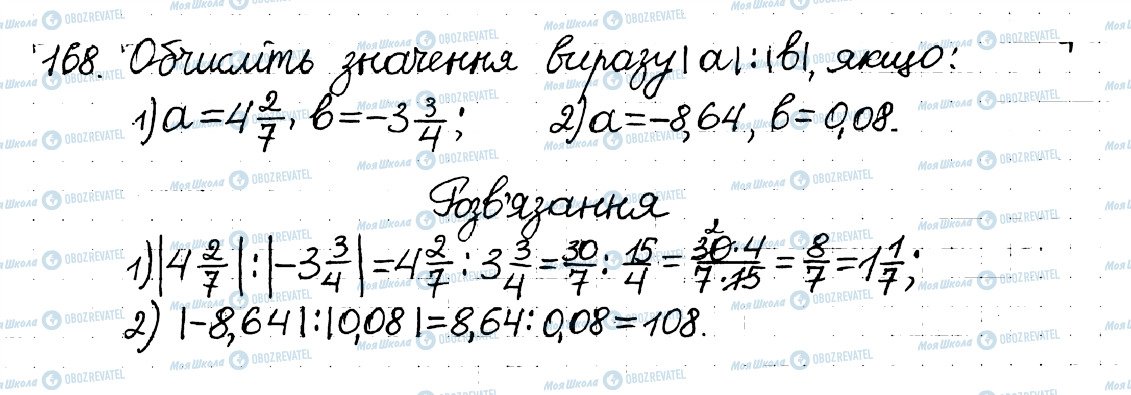 168. Обчисліть значення виразу |a|:|b|, якщо:
1) a=4 2/7, b=-3 3/4; 2) a=-8,64, b=0,08.
Розв'язання
1) |4 2/7|:|-3 3/4|=4 2/7:3 3/4=30/7:15/4=(30·4)/(7·15)=8/7=1 1/7;
2) |-8,64|:|0,08|=8,64:0,08=108.